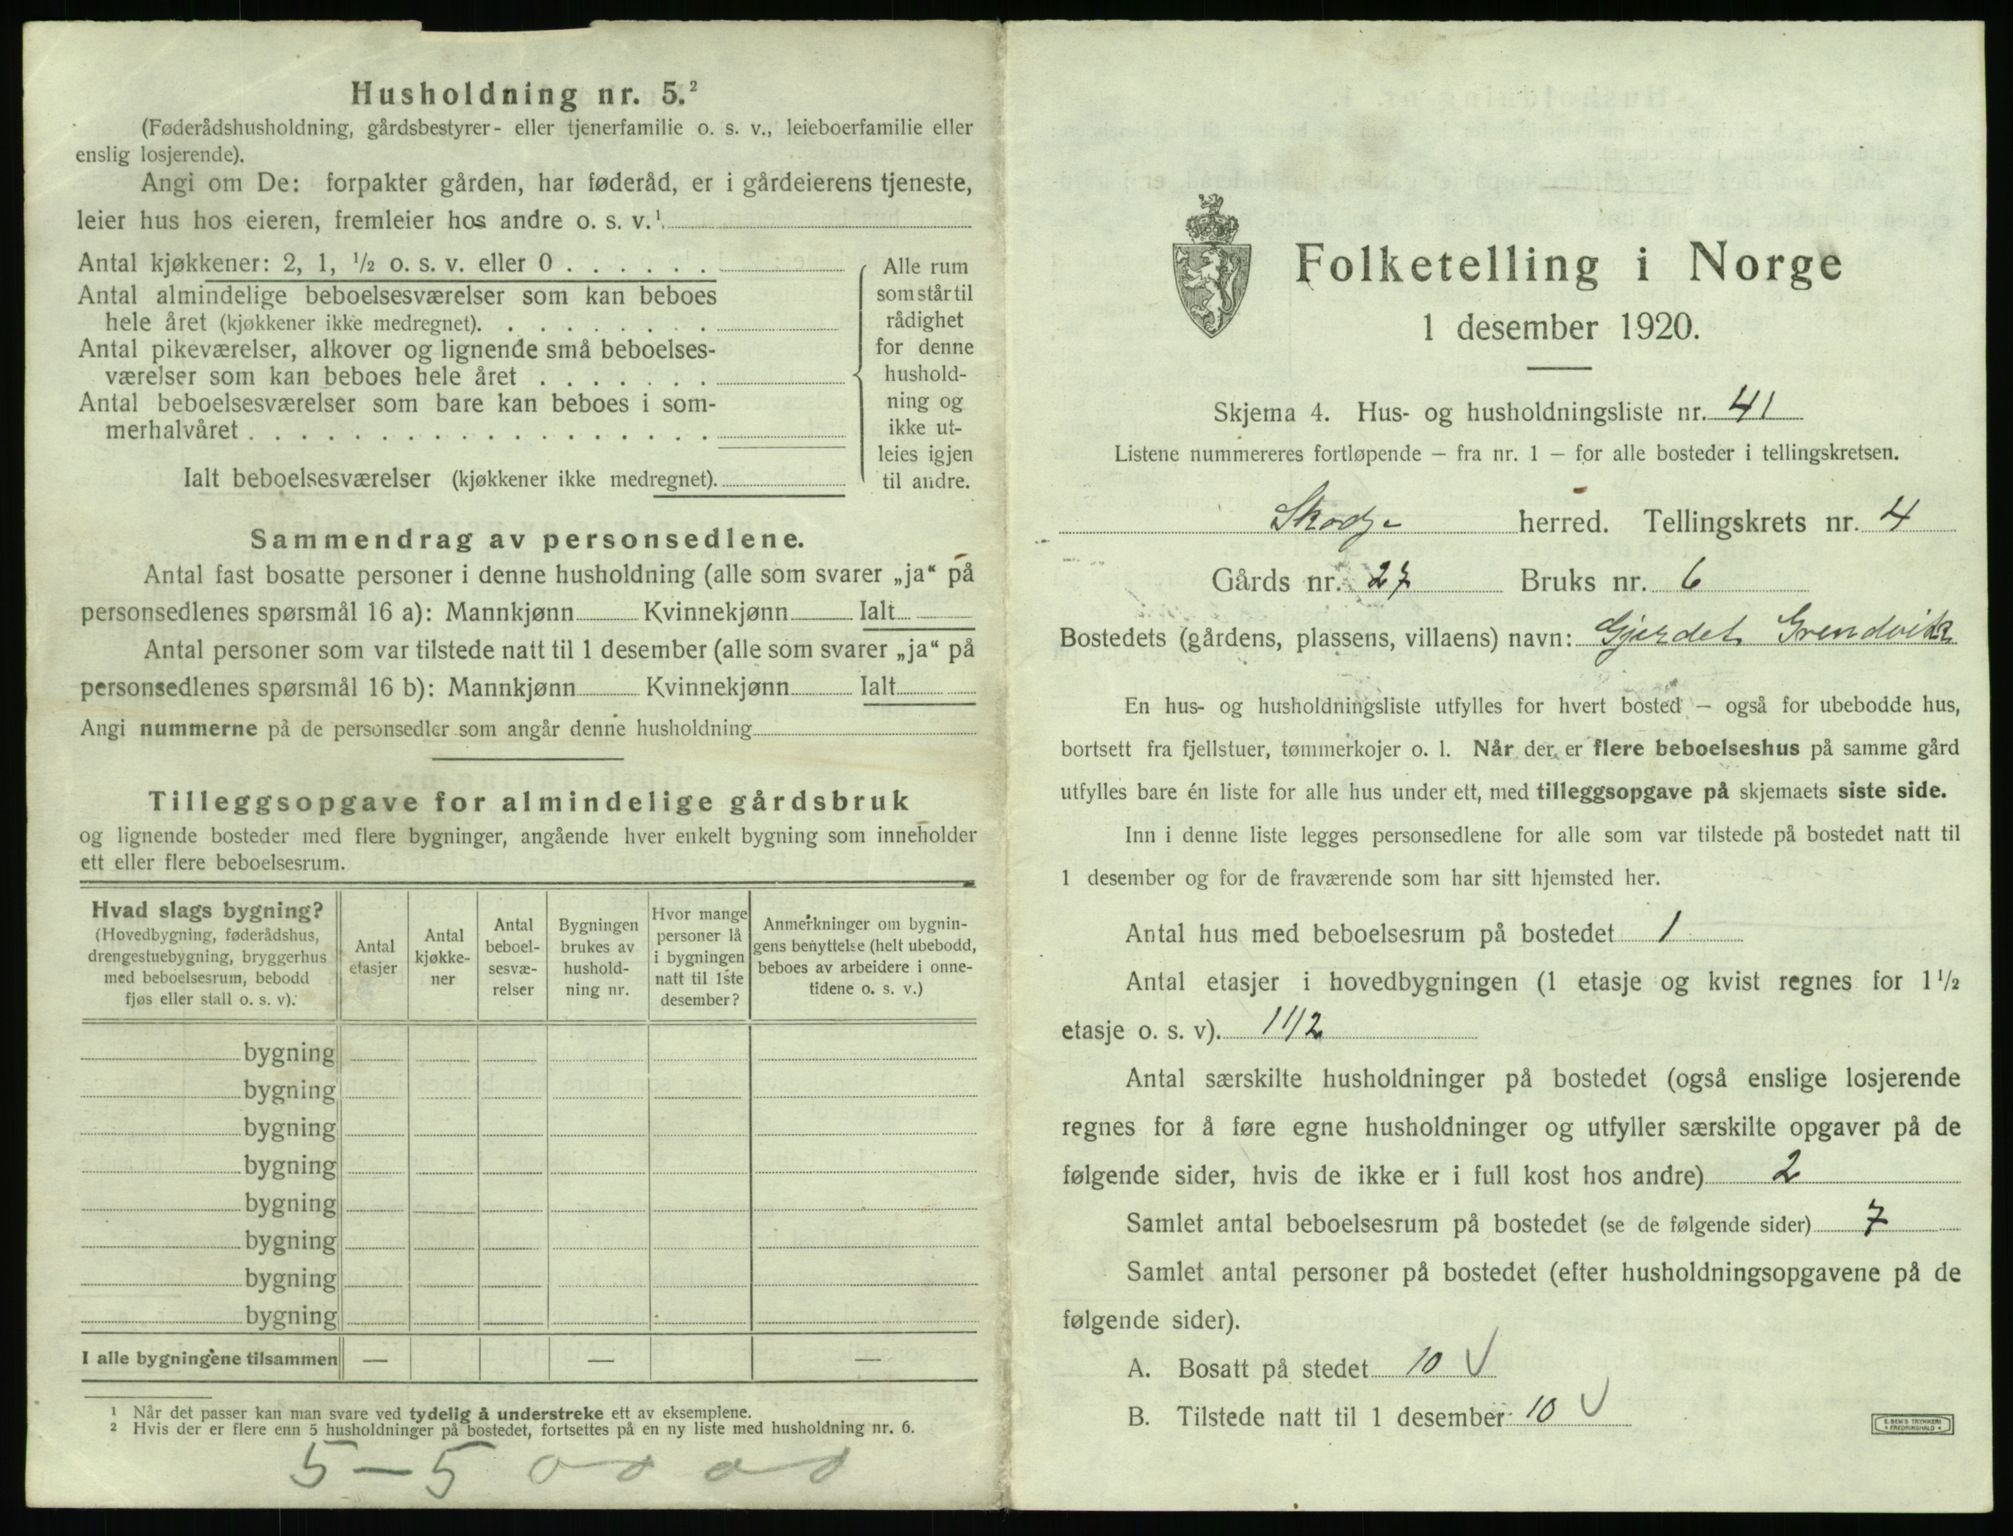 Husholdning nr. 5.²
(Føderådshusholdning, gårdsbestyrer- eller tjenerfamilie o. s. v., leieboerfamilie eller
enslig losjerende).
Angi om De: forpakter gården, har føderåd, er i gårdeierens tjeneste,
leier hus hos eieren, fremleier hos andre o. s. v.¹
Antal kjøkkener: 2, 1, ½ o. s. v. eller 0 . . . . . .
Antal almindelige beboelsesværelser som kan beboes
hele året (kjøkkener ikke medregnet). . . . . . . . .
Antal pikeværelser, alkover og lignende små beboelses-
værelser som kan beboes hele året . . . . . . .
Antal beboelsesværelser som bare kan beboes i som-
merhalvåret . . . . . . . . . . . . . . . . . .
Ialt beboelsesværelser (kjøkkener ikke medregnet).
Alle rum
som står til
rådighet
for denne
hushold-
ning og
ikke ut-
leies igjen
til andre.
Sammendrag av personsedlene.
Antal fast bosatte personer i denne husholdning (alle som svarer „ja“ på
personsedlenes spørsmål 16 a): Mannkjønn Kvinnekjønn Ialt
Antal personer som var tilstede natt til 1 desember (alle som svarer „ja“ på
personsedlenes spørsmål 16 b): Mannkjønn Kvinnekjønn Ialt
Angi nummerne på de personsedler som angår denne husholdning
Tilleggsopgave for almindelige gårdsbruk
og lignende bosteder med flere bygninger, angående hver enkelt bygning som inneholder
ett eller flere beboelsesrum.
Hvad slags bygning?
(Hovedbygning, føderådshus,
drengestuebygning, bryggerhus
med beboelsesrum, bebodd
fjøs eller stall o. s. v).
Antal
etasjer
Antal
kjøkke-
ner
Antal
beboel-
sesvæ-
relser
Bygningen
brukes av
hushold-
ning nr.
Hvor mange
personer lå
i bygningen
natt til 1ste
desember?
Anmerkninger om bygnin-
gens benyttelse (helt ubebodd,
beboes av arbeidere i onne-
tidene o. s. v.)
bygning
bygning
bygning
bygning
bygning
bygning
bygning
bygning
I alle bygningene tilsammen — — —
¹ Når det passer kan man svare ved tydelig å understreke ett av eksemplene.
² Hvis der er flere enn 5 husholdninger på bostedet, fortsettes på en ny liste med husholdning nr. 6.
5 – 5 0 0 0 0
Folketelling i Norge
1 desember 1920.
Skjema 4. Hus- og husholdningsliste nr. 41
Listene nummereres fortløpende – fra nr. 1 – for alle bosteder i tellingskretsen.
Skodje herred. Tellingskrets nr. 4
Gårds nr. 27 Bruks nr. 6
Bostedets (gårdens, plassens, villaens) navn: Gjerdet Grendvik
En hus- og husholdningsliste utfylles for hvert bosted – også for ubebodde hus,
bortsett fra fjellstuer, tømmerkojer o. l. Når der er flere beboelseshus på samme gård
utfylles bare én liste for alle hus under ett, med tilleggsopgave på skjemaets siste side.
Inn i denne liste legges personsedlene for alle som var tilstede på bostedet natt til
1 desember og for de fraværende som har sitt hjemsted her.
Antal hus med beboelsesrum på bostedet 1
Antal etasjer i hovedbygningen (1 etasje og kvist regnes for 1½
etasje o. s. v). 1 1/2
Antal særskilte husholdninger på bostedet (også enslige losjerende
regnes for å føre egne husholdninger og utfyller særskilte opgaver på de
følgende sider, hvis de ikke er i full kost hos andre) 2
Samlet antal beboelsesrum på bostedet (se de følgende sider) 7
Samlet antal personer på bostedet (efter husholdningsopgavene på de
følgende sider).
A. Bosatt på stedet 10 √
B. Tilstede natt til 1 desember 10 √